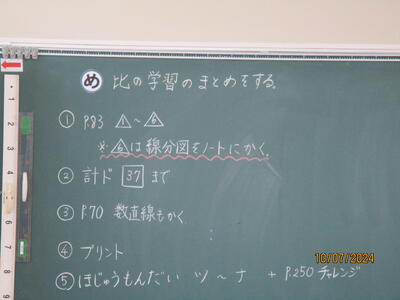 め 比の学習のまとめをする。
① P.83 △1～△6
※△6は線分図をノートにかく。
② 計ド 37 まで
③ P.70 数直線もかく
④ プリント
⑤ ほじゅうもんだい ツ～ナ + P.250 チャレンジ
10/07/2024
1
2
3
4
5
6
7
8
9